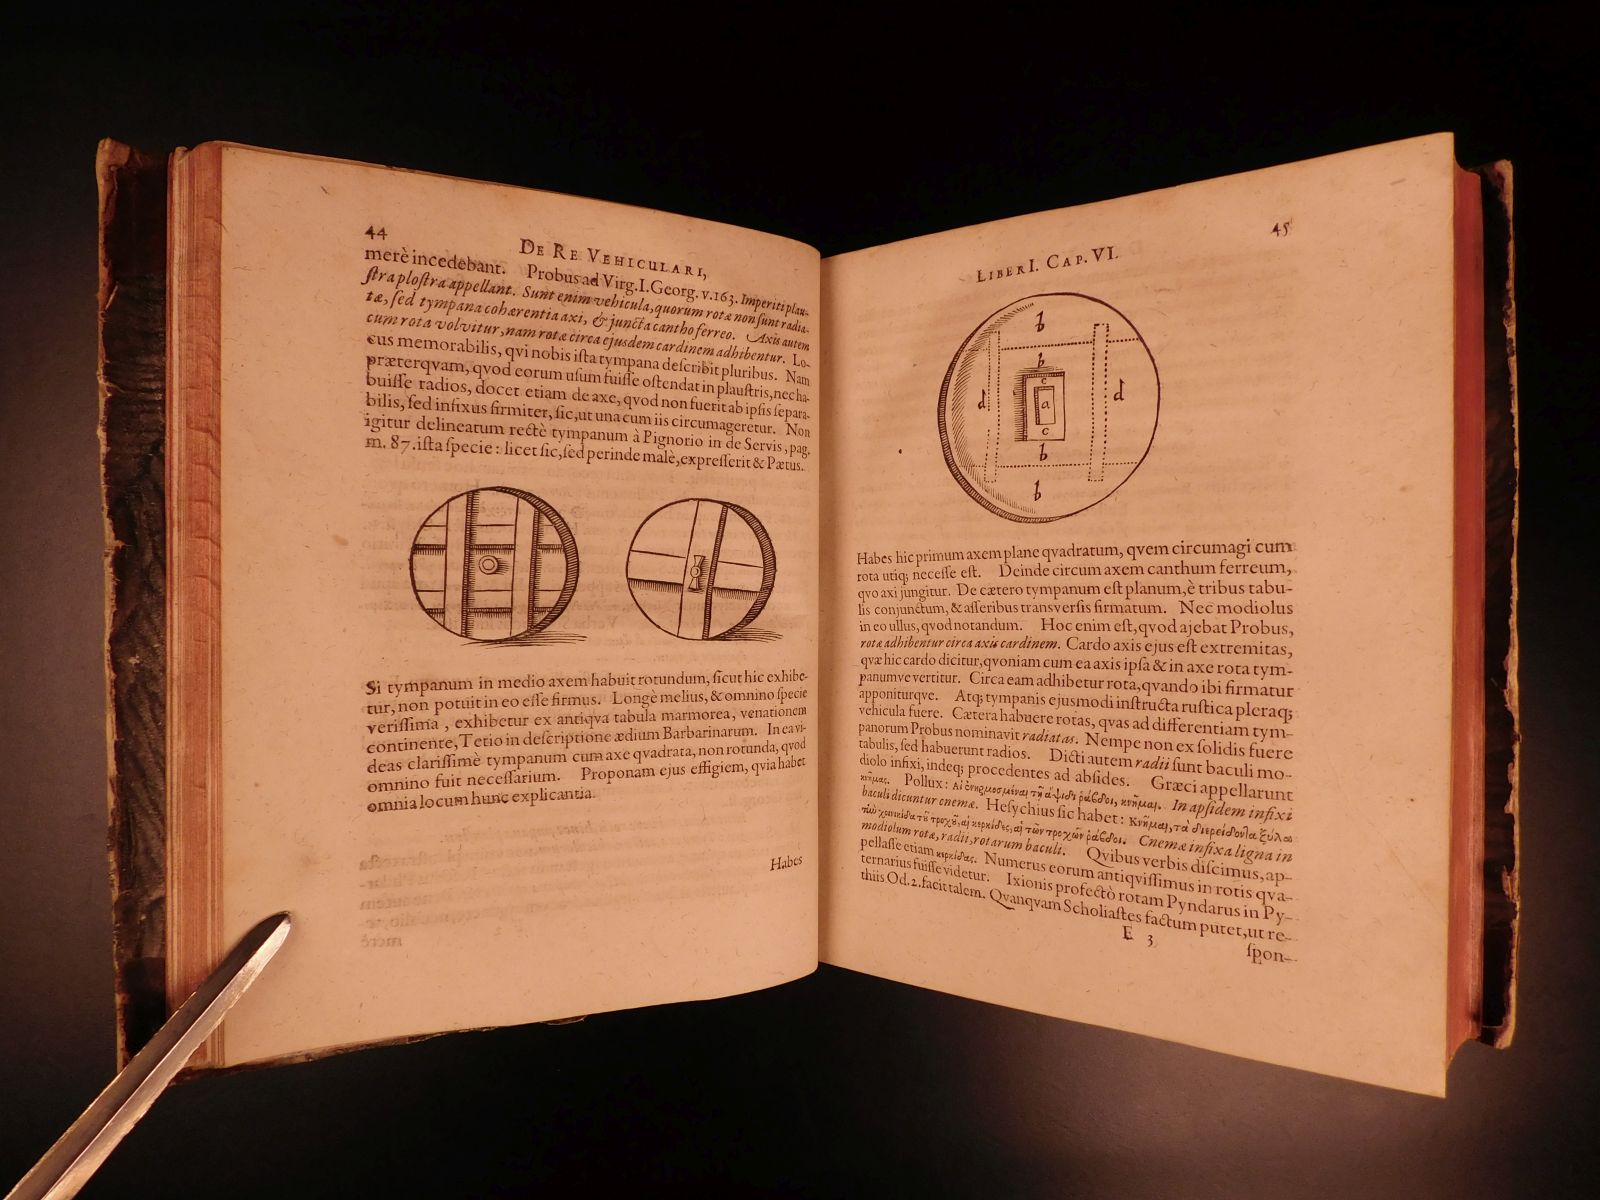 44
DE RE VEHICULARI,
merè incedebant. Probus ad Virg. I. Georg. v. 163. Imperiti plau-
ſtra ploſtra appellant. Sunt enim vehicula, quorum rotæ non ſunt radia-
tæ, ſed tympana cohærentia axi, & juncta cantho ferreo. Axis autem
cum rota volvitur, nam rotæ circa ejusdem cardinem adhibentur. Lo-
cus memorabilis, qvi nobis iſta tympana deſcribit pluribus. Nam
præterqvam, qvod eorum uſum fuiſſe oſtendat in plauſtris, nec ha-
buiſſe radios, docet etiam de axe, qvod non fuerit ab ipſis ſepara-
bilis, ſed infixus firmiter, ſic, ut una cum iis circumageretur. Non
igitur delineatum rectè tympanum à Pignorio in de Servis, pag.
m. 87. iſta ſpecie: licet ſic, ſed perinde malè, expreſſerit & Pætus.
Si tympanum in medio axem habuit rotundum, ſicut hic exhibe-
tur, non potuit in eo eſſe firmus. Longè melius, & omnino ſpecie
veriſſima, exhibetur ex antiqva tabula marmorea, venationem
continente, Tetio in deſcriptione ædium Barbarinarum. In ea vi-
deas clariſſimè tympanum cum axe qvadrata, non rotunda, qvod
omnino fuit neceſſarium. Proponam ejus effigiem, qvia habet
omnia locum hunc explicantia.
Habes
45
LIBER I. CAP. VI.
b
b
c
d a d
c
b
b
Habes hic primum axem plane qvadratum, qvem circumagi cum
rota utiq; neceſſe eſt. Deinde circum axem canthum ferreum,
qvo axi jungitur. De cætero tympanum eſt planum, è tribus tabu-
lis conjunctum, & aſſeribus transverſis firmatum. Nec modiolus
in eo ullus, qvod notandum. Hoc enim eſt, qvod ajebat Probus,
rotæ adhibentur circa axis cardinem. Cardo axis ejus eſt extremitas,
qvæ hic cardo dicitur, qvoniam cum ea axis ipſa & in axe rota tym-
panumve vertitur. Circa eam adhibetur rota, qvando ibi firmatur
apponiturqve. Atq; tympanis ejusmodi inſtructa ruſtica pleraq;
vehicula fuere. Cætera habuere rotas, qvas ad differentiam tym-
panorum Probus nominavit radiatas. Nempe non ex ſolidis fuere
tabulis, ſed habuerunt radios. Dicti autem radii ſunt baculi mo-
diolo infixi, indeq; procedentes ad abſides. Græci appellarunt
κνήμας. Pollux: Αἱ ἐνηρμοσμέναι τῇ ἁψῖδι ῥάβδοι, κνῆμαι. In apſidem infixi
baculi dicuntur cnemæ. Heſychius ſic habet: Κνῆμαι, τὰ διερείδοντα ξύλα
τὴν χοινικίδα τοῦ τροχοῦ, αἱ κερκίδες, αἱ τῶν τροχῶν ῥάβδοι. Cnemæ infixa ligna in
modiolum rotæ, radii, rotarum baculi. Qvibus verbis diſcimus, ap-
pellaſſe etiam κερκίδας. Numerus eorum antiqviſſimus in rotis qva-
ternarius fuiſſe videtur. Ixionis profectò rotam Pyndarus in Py-
thiis Od. 2. facit talem. Qvanqvam Scholiaſtes factum putet, ut re-
E 3
ſpon-